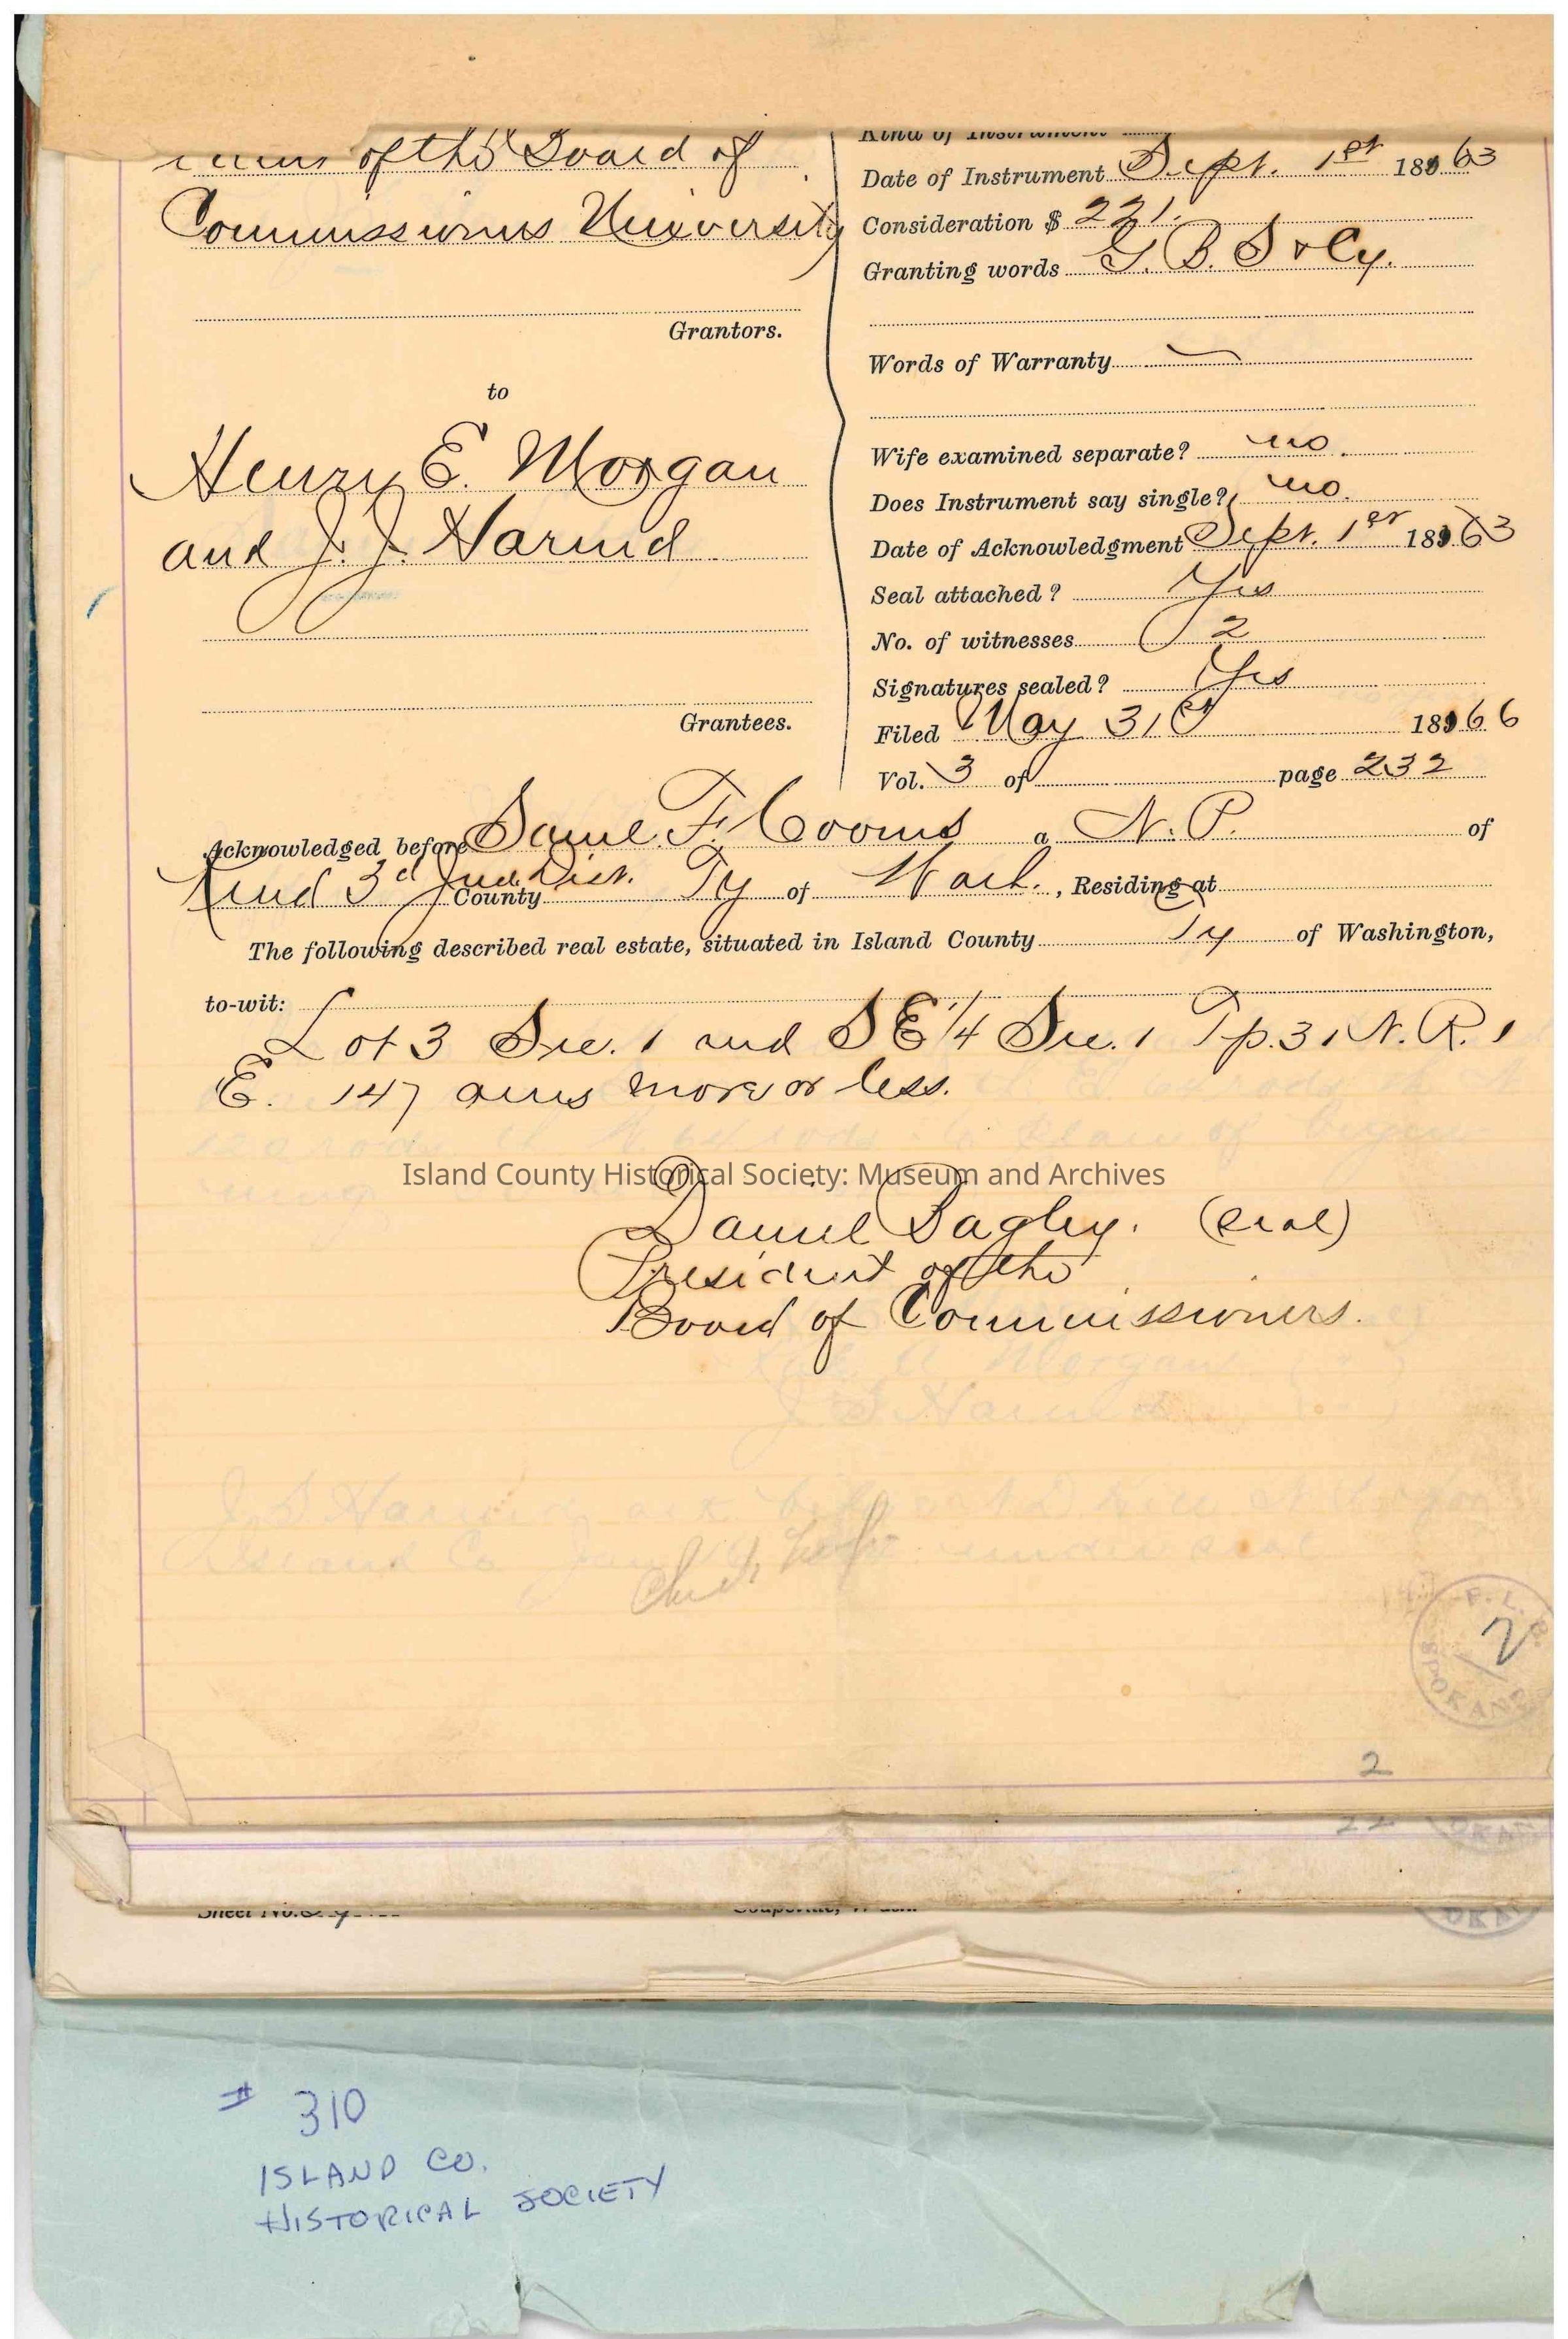 of the Board of
Commissioners University
Grantors.
to
Henry E. Morgan
and J. J. Harned
Grantees.
Kind of Instrument
Date of Instrument Sept. 1st 1863
Consideration $ 221.
Granting words G. B. S & Cy.
Words of Warranty
Wife examined separate? no.
Does Instrument say single? no.
Date of Acknowledgment Sept. 1st 1863
Seal attached? Yes
No. of witnesses 2
Signatures sealed? Yes
Filed May 31st 1866
Vol. 3 of page 232
Acknowledged before Saml. F. Cooms a N. P. of
3d Jud. Dist. County Ty of Wash., Residing at
The following described real estate, situated in Island County Ty of Washington,
to-wit:
Lot 3 Sec. 1 and S E 1/4 Sec. 1 Tp. 31 N. R. 1
E. 147 acres more or less.
Island County Historical Society: Museum and Archives
Daniel Bagley. (Seal)
President of the
Board of Commissioners.
F. L. B.
2
SPOKANE
2
22
OKAN
Sheet No. Coupeville, Wash.
OKA
# 310
ISLAND CO.
HISTORICAL SOCIETY